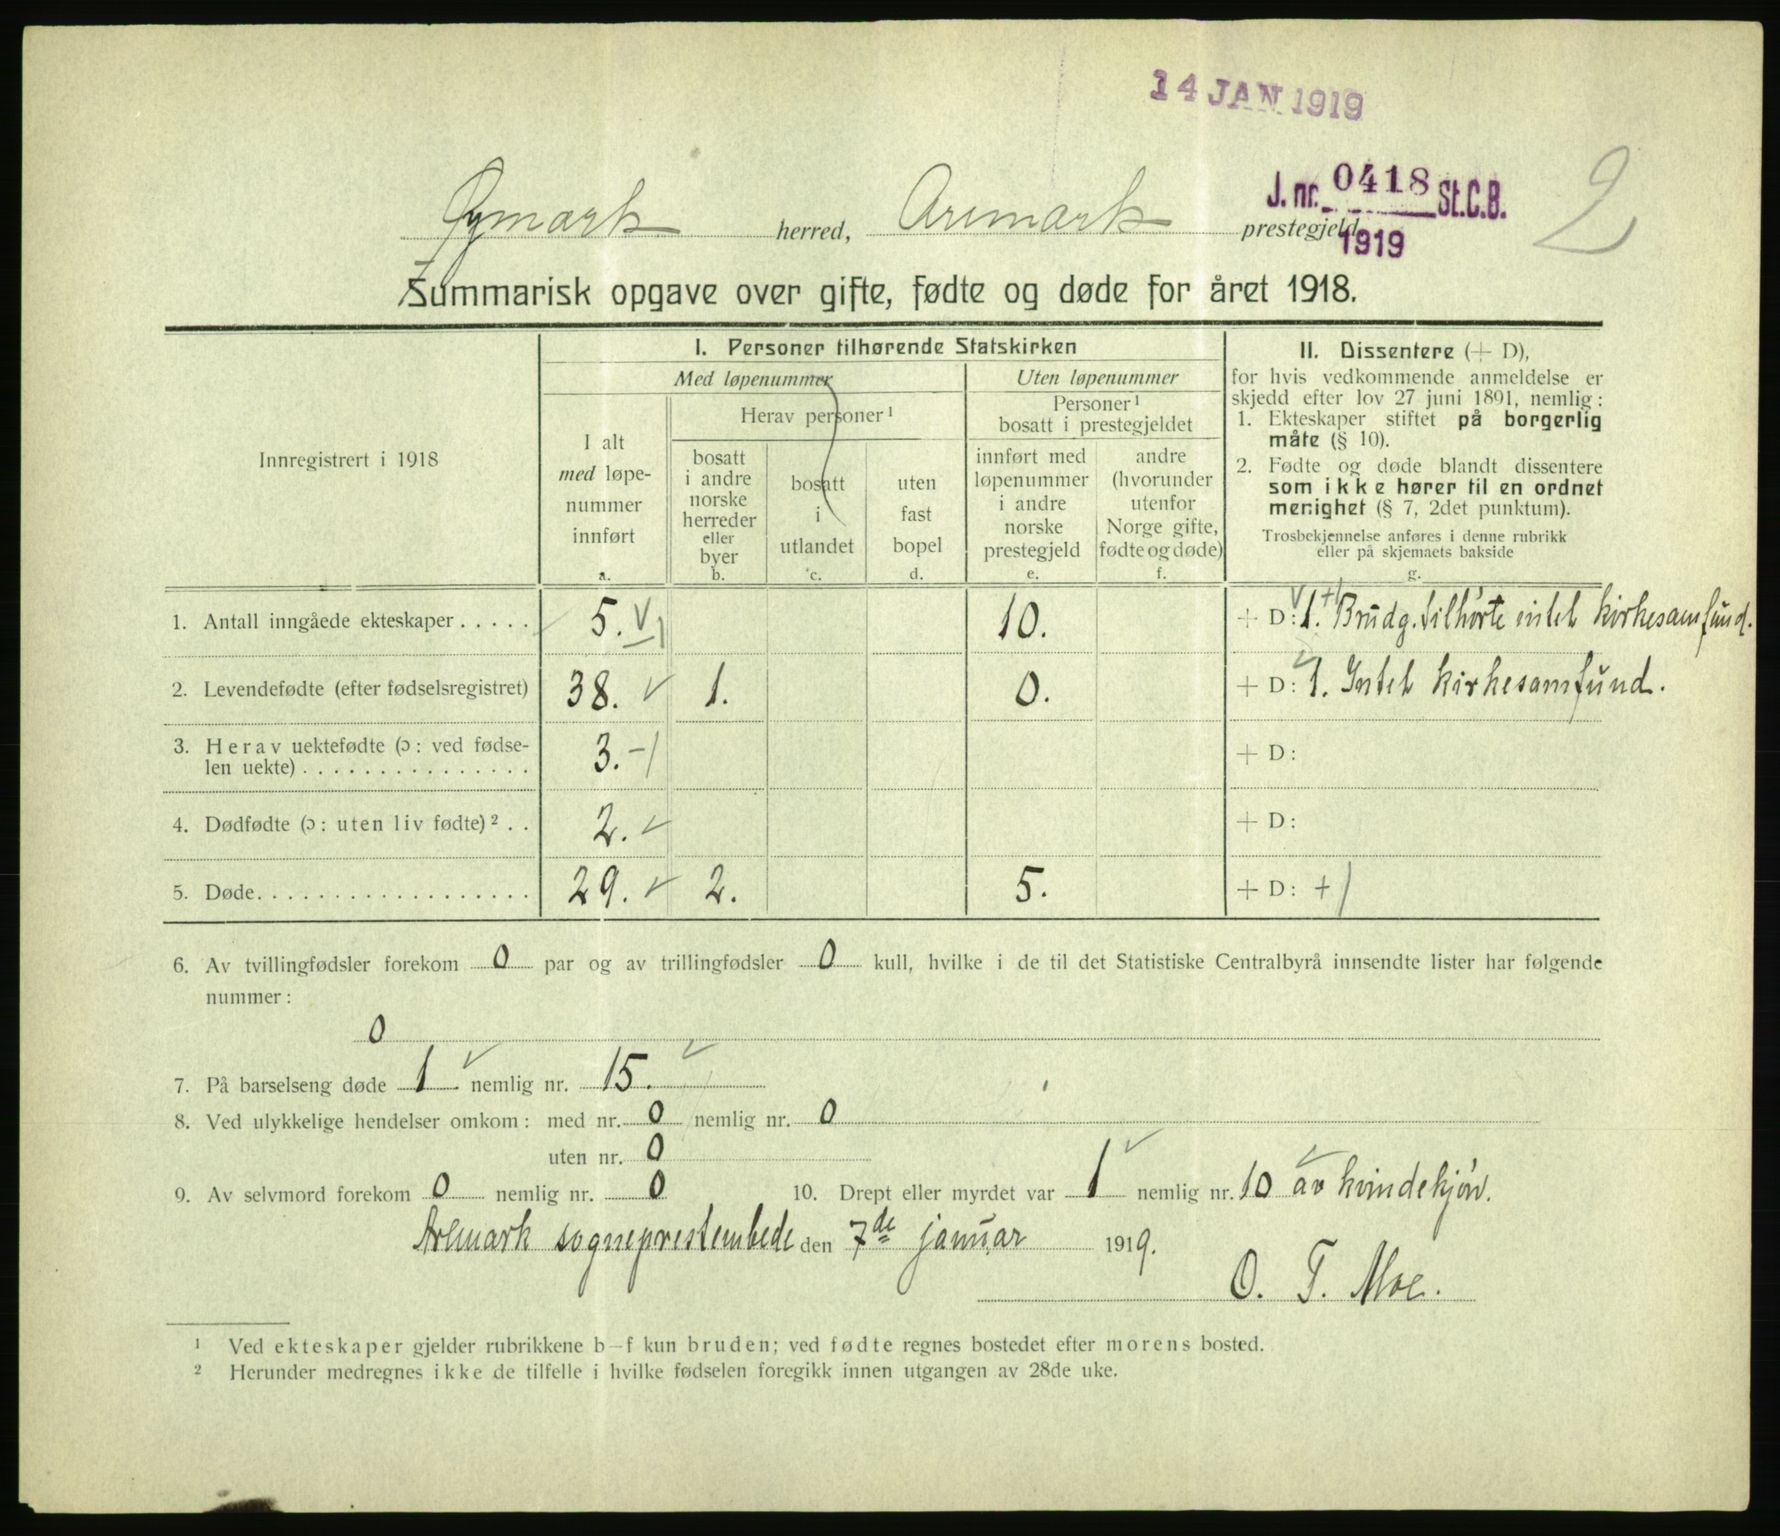 14 JAN 1919
J. nr. 0418 St.C.B.
1919
2
Øymark herred, Aremark prestegjeld.
Summarisk opgave over gifte, fødte og døde for året 1918.
Innregistrert i 1918
I. Personer tilhørende Statskirken
Med løpenummer
Uten løpenummer
I alt
med løpe-
nummer
innført
a.
Herav personer¹
bosatt
i andre
norske
herreder
eller
byer
b.
bosatt
i
utlandet
c.
uten
fast
bopel
d.
Personer¹
bosatt i prestegjeldet
innført med
løpenummer
i andre
norske
prestegjeld
e.
andre
(hvorunder
utenfor
Norge gifte,
fødte og døde)
f.
II. Dissentere (+ D),
for hvis vedkommende anmeldelse er
skjedd efter lov 27 juni 1891, nemlig:
1. Ekteskaper stiftet på borgerlig
måte (§ 10).
2. Fødte og døde blandt dissentere
som ikke hører til en ordnet
menighet (§ 7, 2det punktum).
Trosbekjennelse anføres i denne rubrikk
eller på skjemaets bakside
g.
1. Antall inngåede ekteskaper . . . . . 5. 10. + D: 1. Brudg. tilhørte intet kirkesamfund.
2. Levendefødte (efter fødselsregistret) 38. 1. 0. + D: 1. Intet kirkesamfund.
3. Herav uektefødte (ɔ: ved fødse-
len uekte) . . . . . . . . . . . . . . . 3. -1 + D:
4. Dødfødte (ɔ: uten liv fødte)² . . 2. + D:
5. Døde. . . . . . . . . . . . . . . . . . 29. 2. 5. + D: +1
6. Av tvillingfødsler forekom 0 par og av trillingfødsler 0 kull, hvilke i de til det Statistiske Centralbyrå innsendte lister har følgende
nummer:
0
7. På barselseng døde 1 nemlig nr. 15.
8. Ved ulykkelige hendelser omkom: med nr. 0 nemlig nr. 0
uten nr. 0
9. Av selvmord forekom 0 nemlig nr. 0 10. Drept eller myrdet var 1 nemlig nr. 10 av kvindekjøn.
Aremark sogneprestembede den 7de januar 1919.
O. T. Moe.
¹ Ved ekteskaper gjelder rubrikkene b–f kun bruden; ved fødte regnes bostedet efter morens bosted.
² Herunder medregnes ikke de tilfelle i hvilke fødselen foregikk innen utgangen av 28de uke.